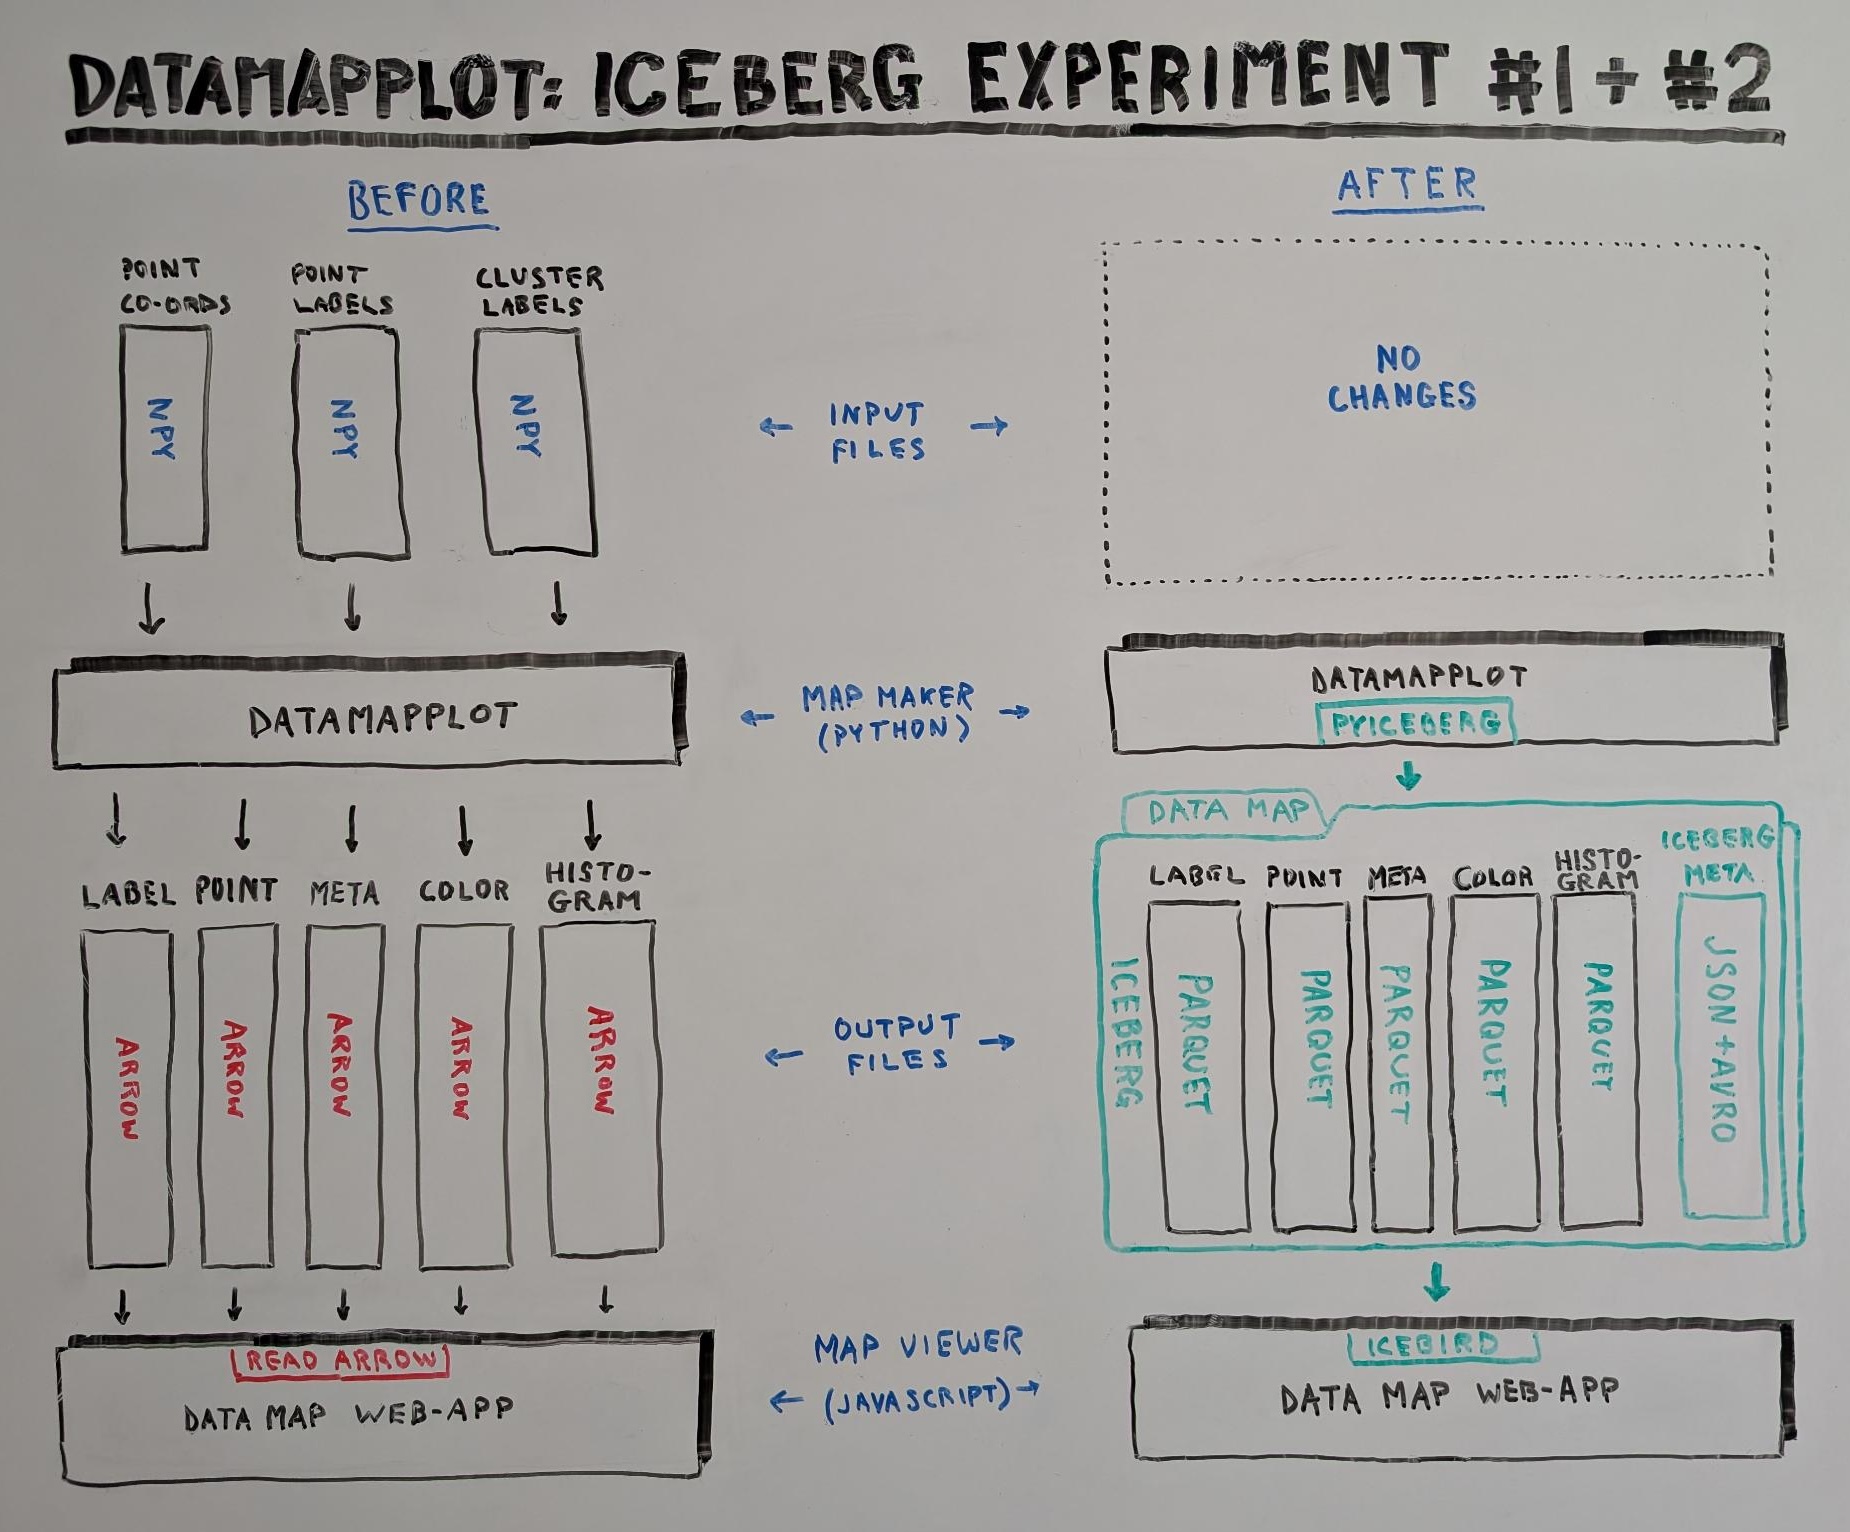 DATAMAPPLOT: ICEBERG EXPERIMENT #1 + #2
BEFORE
AFTER
POINT
CO-ORDS
POINT
LABELS
CLUSTER
LABELS
NPY
NPY
NPY
← INPUT →
FILES
NO
CHANGES
DATAMAPPLOT
← MAP MAKER →
(PYTHON)
DATAMAPPLOT
PYICEBERG
LABEL
POINT
META
COLOR
HISTO-
GRAM
ARROW
ARROW
ARROW
ARROW
ARROW
← OUTPUT →
FILES
DATA MAP
ICEBERG
LABEL
POINT
META
COLOR
HISTO-
GRAM
ICEBERG
META
PARQUET
PARQUET
PARQUET
PARQUET
PARQUET
JSON+AVRO
READ ARROW
DATA MAP WEB-APP
MAP VIEWER
← (JAVASCRIPT) →
ICEBIRD
DATA MAP WEB-APP